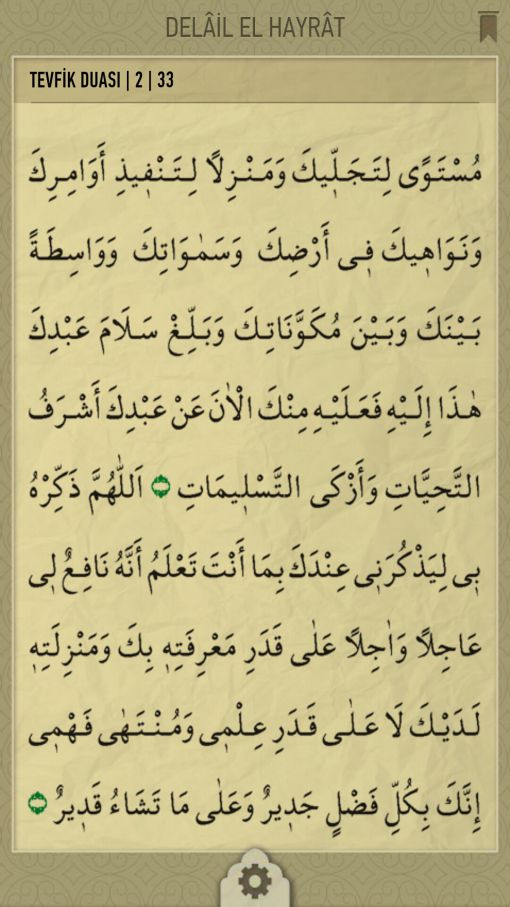 DELÂİL EL HAYRÂT
TEVFİK DUASI | 2 | 33
مُسْتَوًى لِتَجَلِّيكَ وَمَنْزِلًا لِتَنْفِيذِ أَوَامِرِكَ
وَنَوَاهِيكَ فِي أَرْضِكَ وَسَمٰوَاتِكَ وَوَاسِطَةً
بَيْنَكَ وَبَيْنَ مُكَوَّنَاتِكَ وَبَلِّغْ سَلَامَ عَبْدِكَ
هٰذَا إِلَيْهِ فَعَلَيْهِ مِنْكَ الْاٰنَ عَنْ عَبْدِكَ أَشْرَفُ
التَّحِيَّاتِ وَأَزْكَى التَّسْلِيمَاتِ اَللّٰهُمَّ ذَكِّرْهُ
بِي لِيَذْكُرَنِي عِنْدَكَ بِمَا أَنْتَ تَعْلَمُ أَنَّهُ نَافِعٌ لِي
عَاجِلًا وَاٰجِلًا عَلٰى قَدَرِ مَعْرِفَتِهِ بِكَ وَمَنْزِلَتِهِ
لَدَيْكَ لَا عَلٰى قَدَرِ عِلْمِي وَمُنْتَهٰى فَهْمِي
إِنَّكَ بِكُلِّ فَضْلٍ جَدِيرٌ وَعَلٰى مَا تَشَاءُ قَدِيرٌ